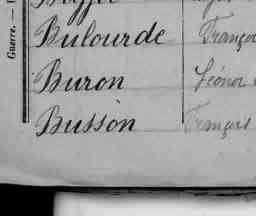 Guerre. —
Bulourde Franço
Buron Léonor
Busson François